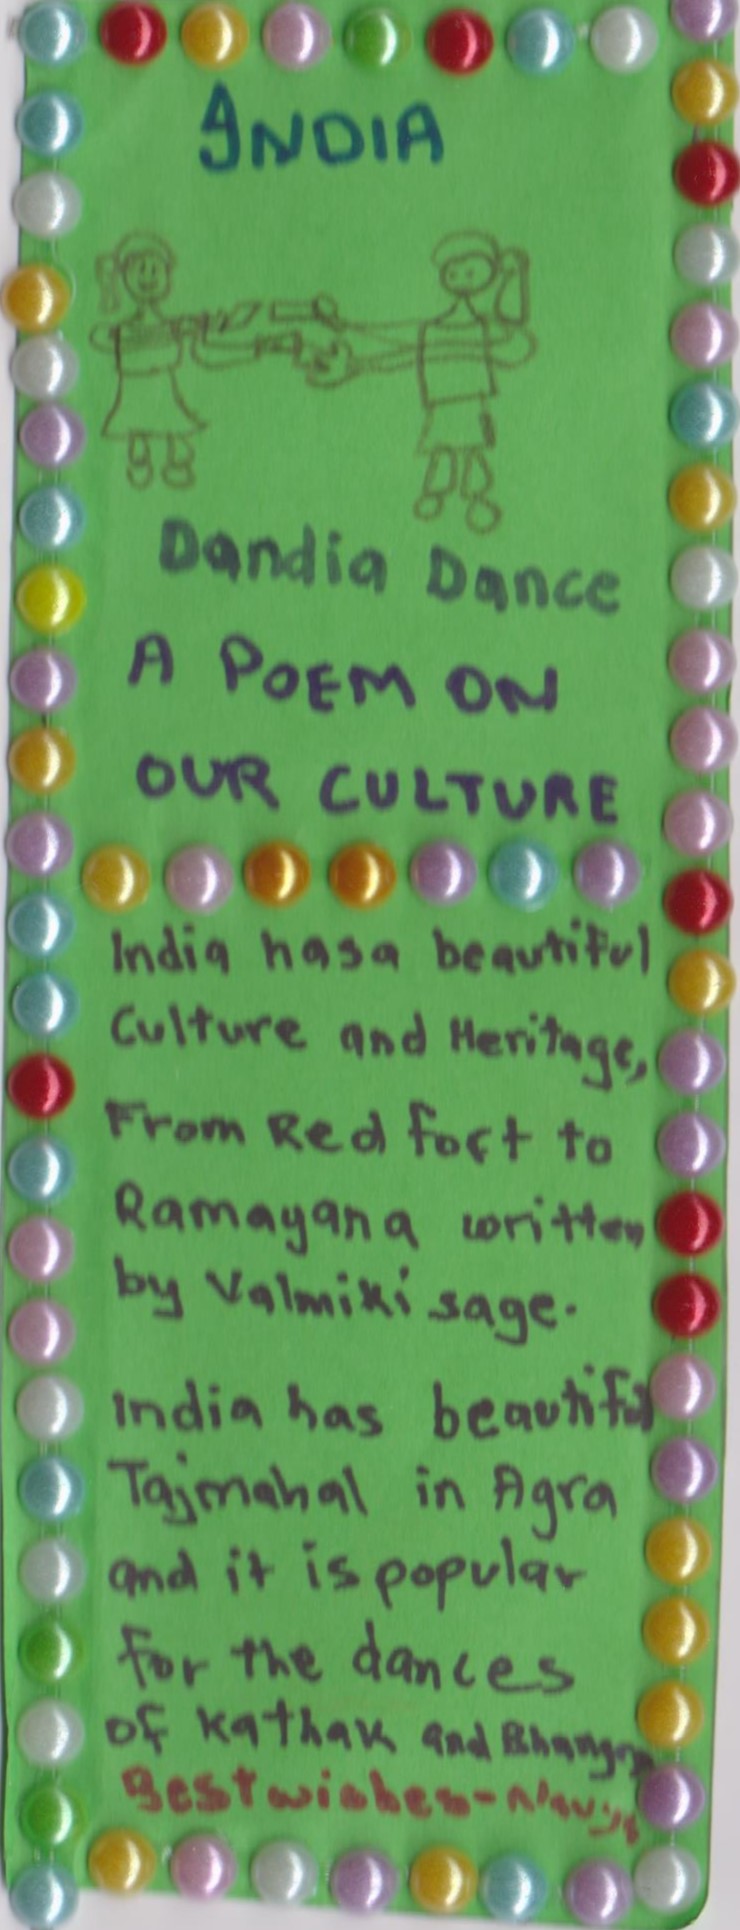 INDIA
Dandia Dance
A POEM ON
OUR CULTURE
India hasa beautiful
Culture and Heritage,
From Red fort to
Ramayana written
by Valmiki sage.
India has beautiful
Tajmahal in Agra
and it is popular
for the dances
of Kathak and Bhangra
Best wishes-